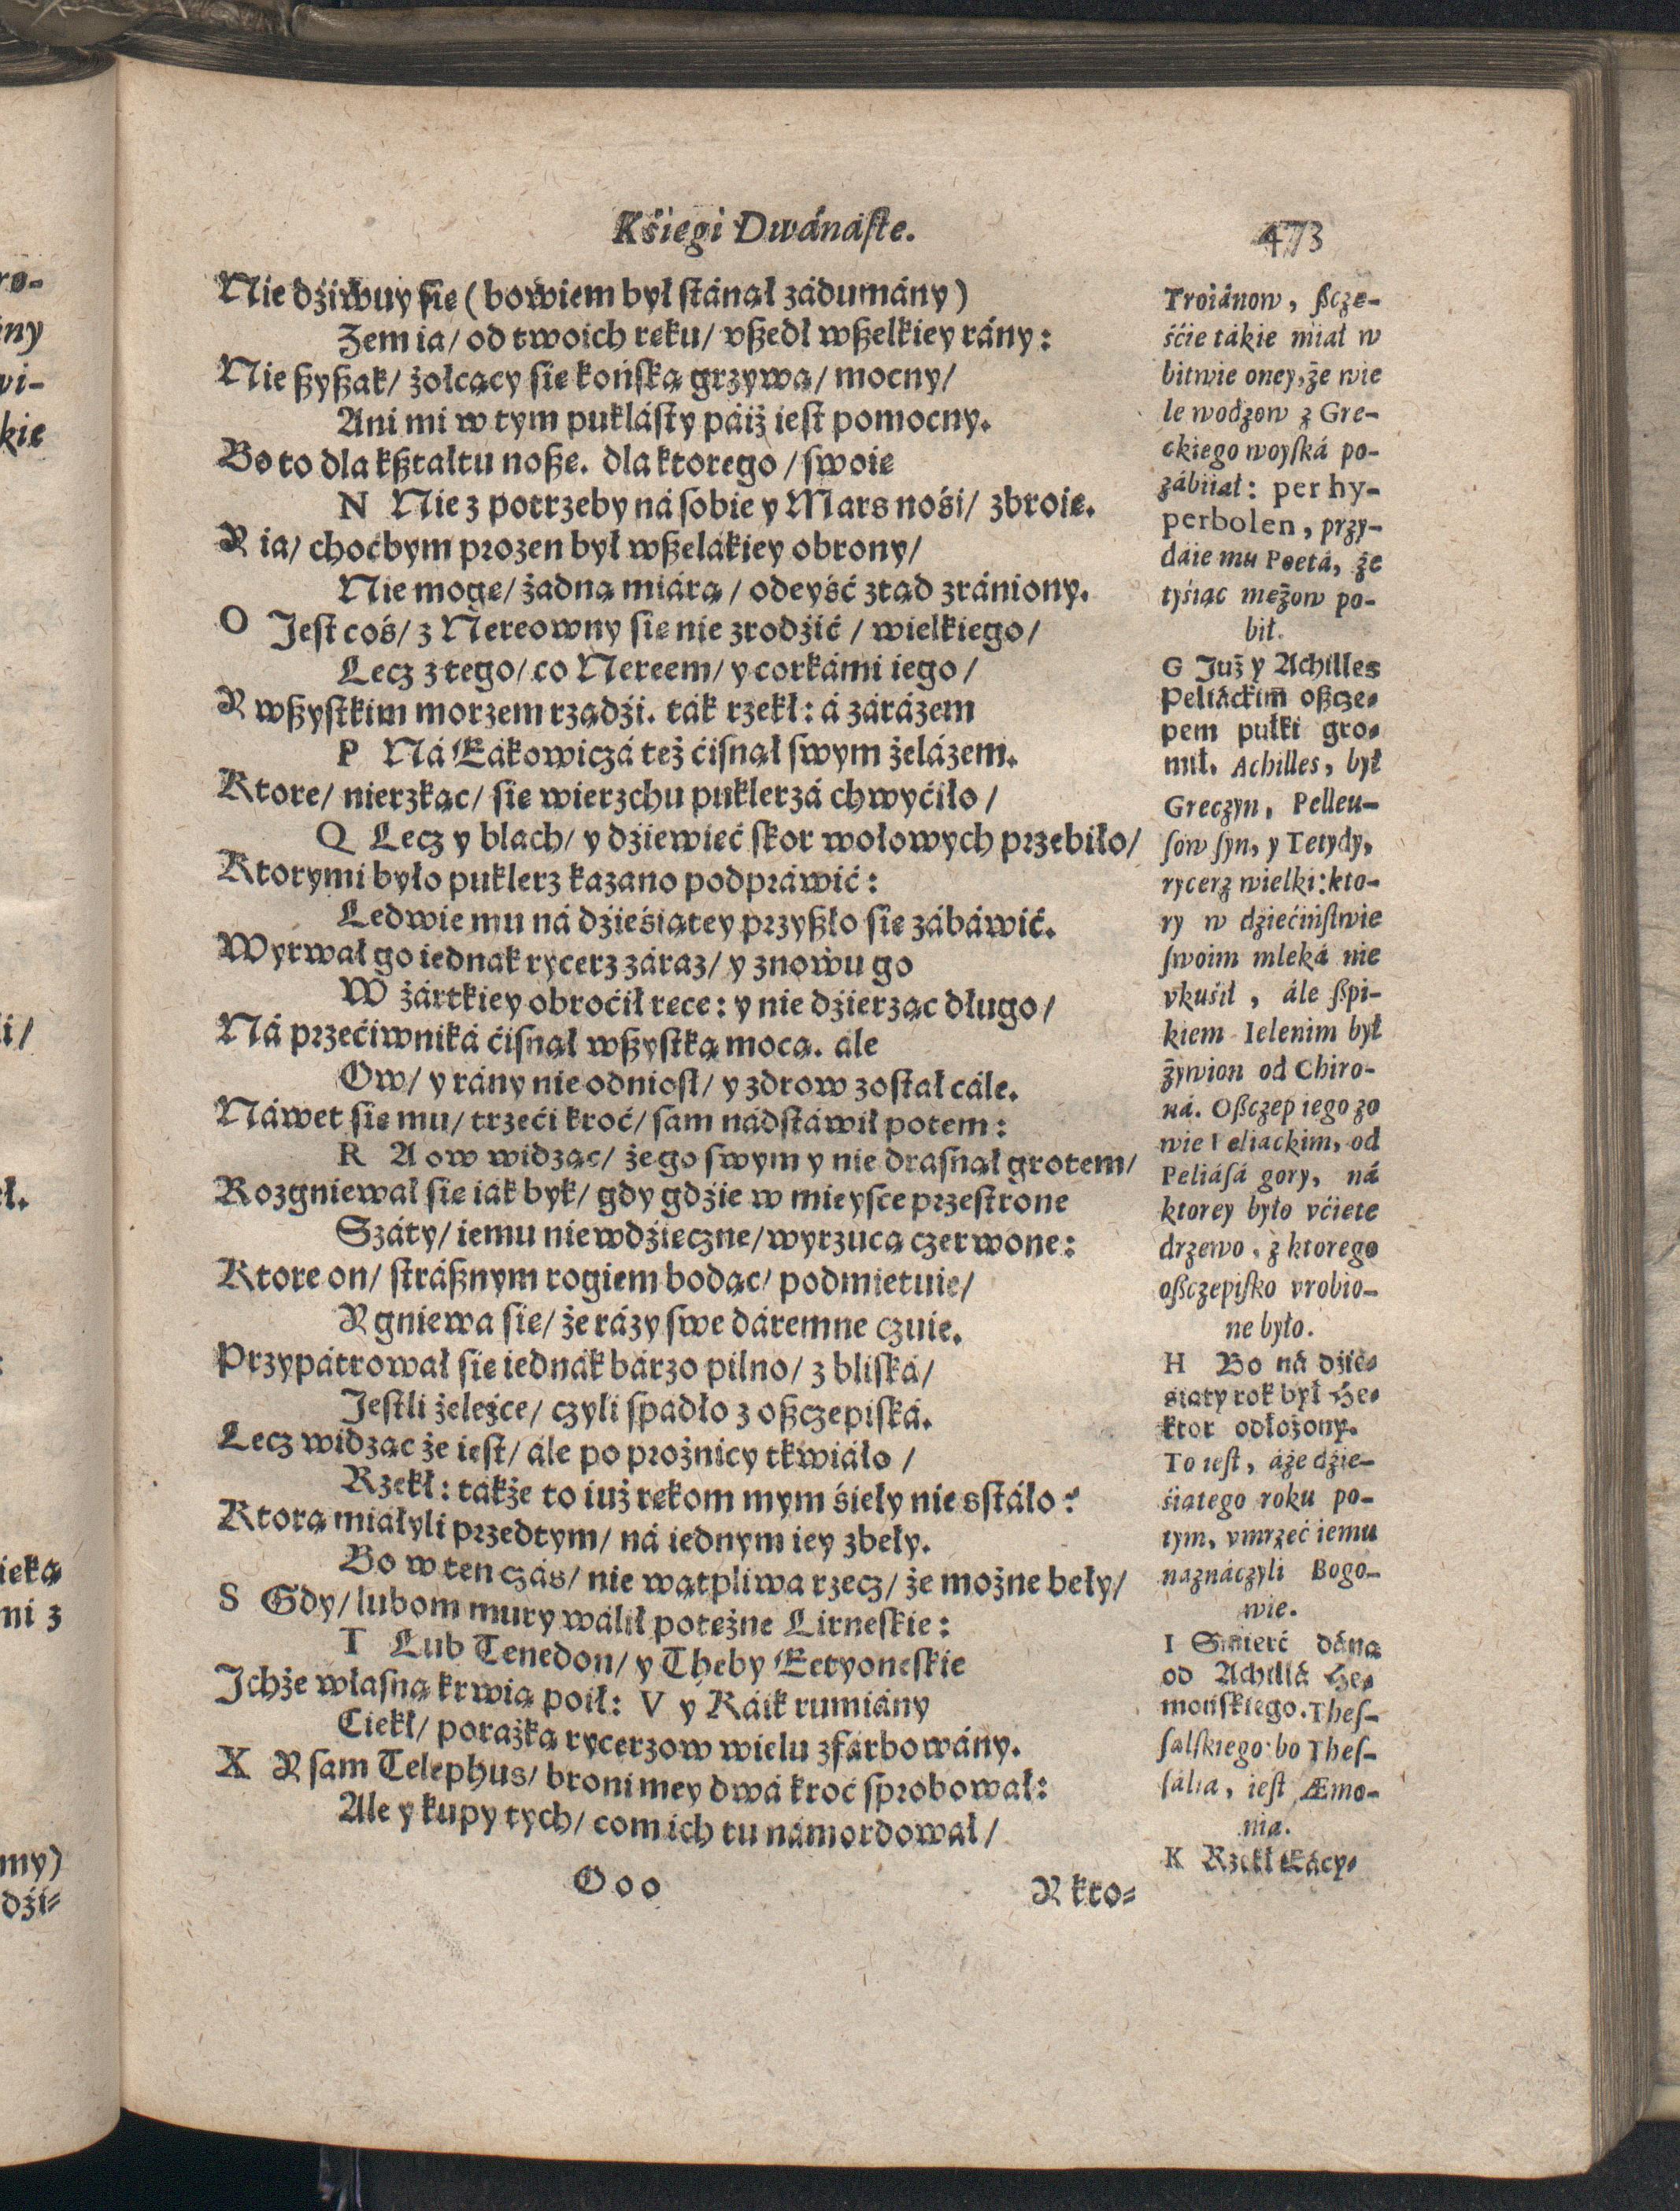 Kśiegi Dwánaſte.
473
Nie dźiwuy ſie (bowiem był ſtánął zádumány)
Zem ia/ od twoich ręku/ vßedł wßelkiey rány:
Nie ßyßak/ żołcący ſie końſką grzywą/ mocny/
Ani mi w tym pukláſty páiż ieſt pomocny.
Bo to dla kßtałtu noße. dla ktorego / ſwoie
N Nie z potrzeby ná ſobie y Mars nośi/ zbroie.
Y ia/ choćbym prozen był wßelákiey obrony/
Nie mogę/ żadną miárą / odeyść ztąd zrániony.
O Jeſt coś/ z Nereowny ſie nie zrodźić / wielkiego/
Lecz z tego/ co Nereem/ y corkámi iego /
Y wßyſtkim morzem rządźi. ták rzekł: á zárázem
P Ná Eákowiczá też ćiſnął ſwym żelázem.
Ktore/ nierzkąc/ ſie wierzchu puklerzá chwyćiło /
Q Lecz y blach/ y dźiewięć ſkor wołowych przebiło/
Ktorymi było puklerz kazano podpráwić:
Ledwie mu ná dźieśiątey przyßło ſie zábáwić.
Wyrwał go iednak rycerz záraz/ y znowu go
W żártkiey obroćił ręce: y nie dźierząc długo/
Ná przećiwniká ćiſnął wßyſtką mocą. ale
Ow/ y rány nie odnioſł/ y zdrow został cále.
Náwet ſie mu/ trzeći kroć/ ſam nádſtáwił potem:
R A ow widząc/ że go ſwym y nie draſnął grotem/
Rozgniewał ſie iák byk/ gdy gdźie w mieyſce przeſtrone
Száty/ iemu niewdźięczne/ wyrzucą czerwone:
Ktore on/ ſtráßnym rogiem bodąc/ podmietuie/
Y gniewa ſie/ że rázy ſwe dáremne czuie.
Przypátrował ſie iednák bárzo pilno/ z bliſká/
Jeſtli żeleźce/ czyli ſpádło z oßczepiſká.
Lecz widząc że ieſt/ ále po prożnicy tkwiáło /
Rzekł: tákże to iuż rękom mym śieły nie sſtáło?
Ktorą miáłyli przedtym/ ná iednym iey zbeły.
Bo w ten czás/ nie wątpliwa rzecz/ że możne beły/
S Gdy/ lubom mury wálił potężne Lirneſkie:
T Lub Tenedon/ y Theby Eetyoneſkie
Jchże własną krwią poił: V y Káik rumiány
Ciekł/ poráżką rycerzow wielu zfárbowány.
X Y ſam Telephus/ broni mey dwá kroć ſprobował:
Ale y kupy tych/ com ich tu námordował/
Ooo
Y kto-
Troiánow, ßczę-
śćie tákie miał w
bitwie oney, że wie
le wodzow z Gre-
ckiego woyſká po-
zábiiał: per hy-
perbolen, przy-
dáie mu Poetá, że
tyśiąc mężow po-
bił.
G Już y Achilles
Peliáckim oßcze-
pem pułki gro-
mił. Achilles, był
Greczyn, Pelleu-
ſow ſyn, y Tetydy,
rycerz wielki: kto-
ry w dziećińſtwie
ſwoim mleká nie
vkuśił , ále ßpi-
kiem Ielenim był
żywion od Chiro-
ná. Oßczep iego zo
wie Peliackim, od
Peliáſá gory, ná
ktorey było vćięte
drzewo, z ktorego
oßczepiſko vrobio-
ne było.
H Bo ná dźie-
siąty rok był He-
ktor odłożony.
To ieſt, áże dźie-
śiątego roku po-
tym, vmrzeć iemu
náznáczyli Bogo-
wie.
I Smierć dáną
od Achillá He-
mońſkiego. Theſ-
ſalſkiego: bo Theſ-
ſália, ieſt Æmo-
nia.
K Rzekł Eácy-